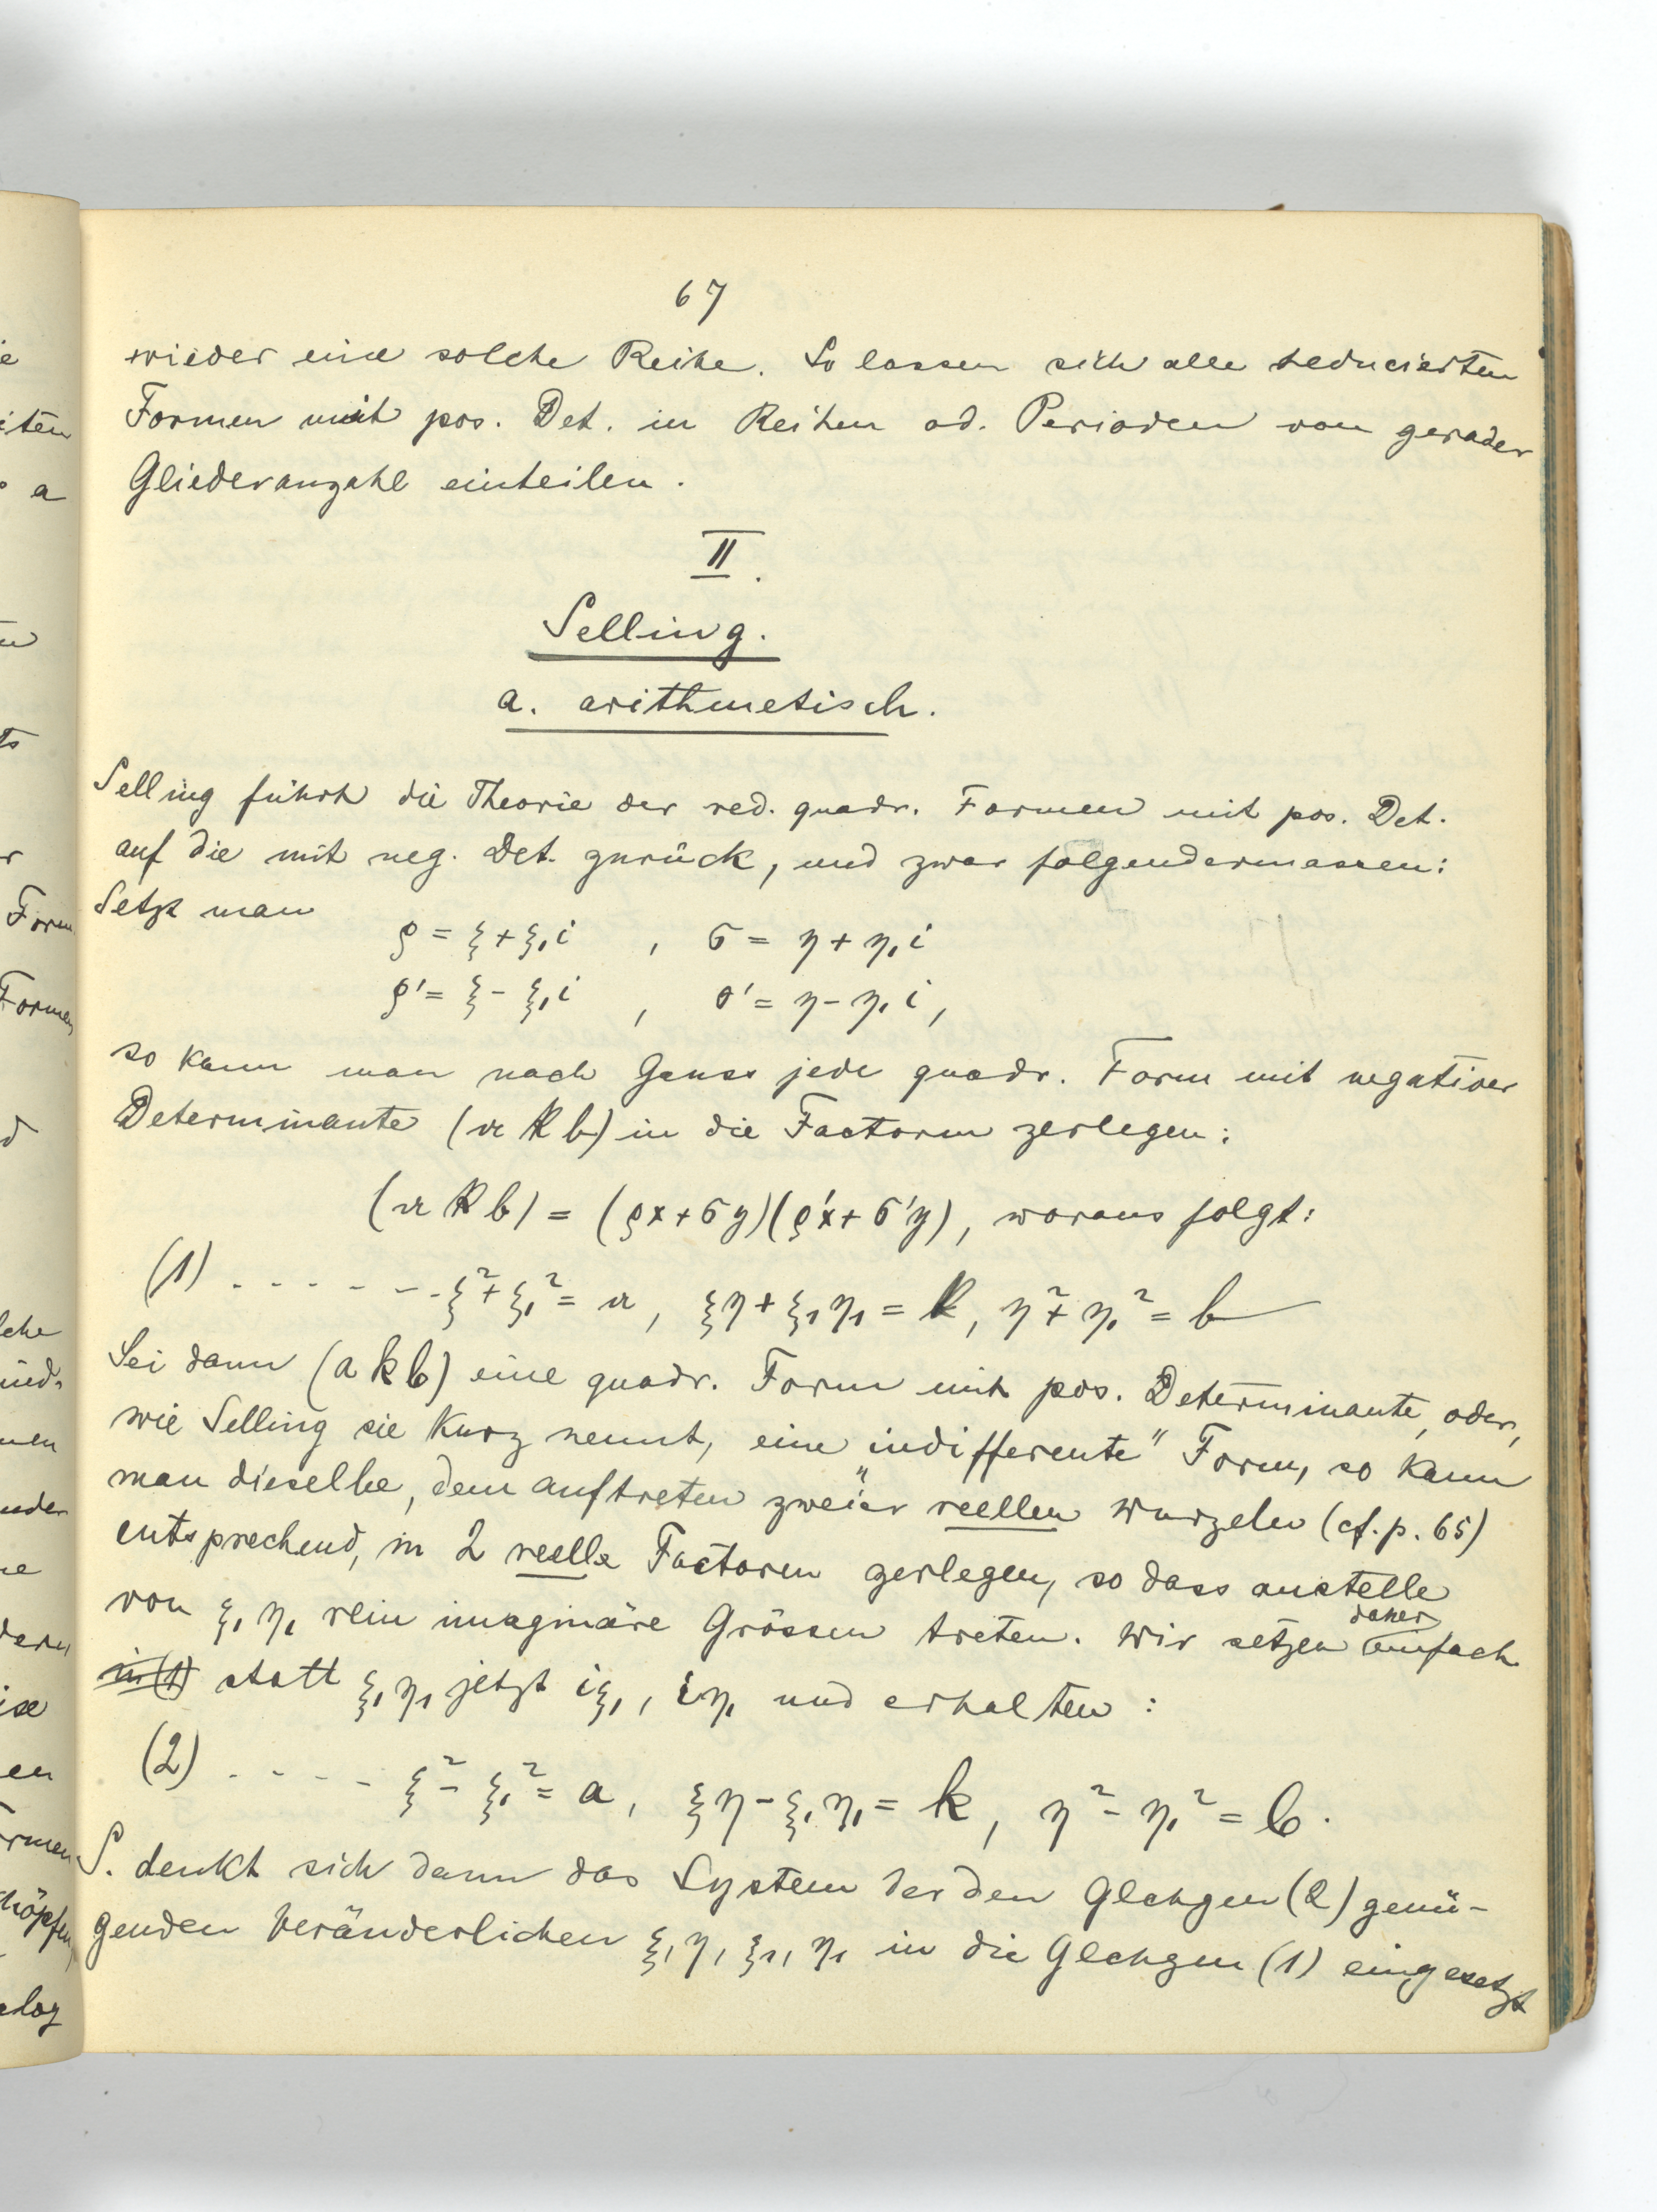 67
wieder eine solche Reihe. So lassen sich alle reducierten
Formen mit pos. Det. in Reihen od. Perioden von gerader
Gliederanzahl einteilen.
II.
Selling.
a. arithmetisch.
Selling führt die Theorie der red. quadr. Formen mit pos. Det.
auf die mit neg. Det. zurück, und zwar folgendermassen:
Setzt man
ρ = ξ + ξ₁i , σ = η + η₁i
ρ' = ξ - ξ₁i , σ' = η - η₁i,
so kann man nach Gauss jede quadr. Form mit negativer
Determinante (𝔞 𝔨 𝔟) in die Factoren zerlegen:
(𝔞 𝔨 𝔟) = (ρx+σy)(ρ'x+σ'y), woraus folgt:
(1) - - - - - - - ξ² + ξ₁² = 𝔞, ξη + ξ₁η₁ = 𝔨, η² + η₁² = 𝔟
Sei dann (a k b) eine quadr. Form mit pos. Determinante, oder,
wie Selling sie kurz nennt, eine „indifferente" Form, so kann
man dieselbe, dem auftreten zweier reellen Wurzeln (cf. p. 65)
entsprechend, in 2 reelle Factoren zerlegen, so dass anstelle
von ξ₁ η₁ rein imaginäre Grössen treten. Wir setzen daher einfach
in (1) statt ξ₁ η₁ jetzt iξ₁, iη₁ und erhalten:
(2) - - - - - ξ² - ξ₁² = a, ξη - ξ₁η₁ = k, η² - η₁² = b.
S. denkt sich dann das System der den Glchgen (2) genü-
genden Veränderlichen ξ, η, ξ₁, η₁ in die Glchgen (1) eingesetzt